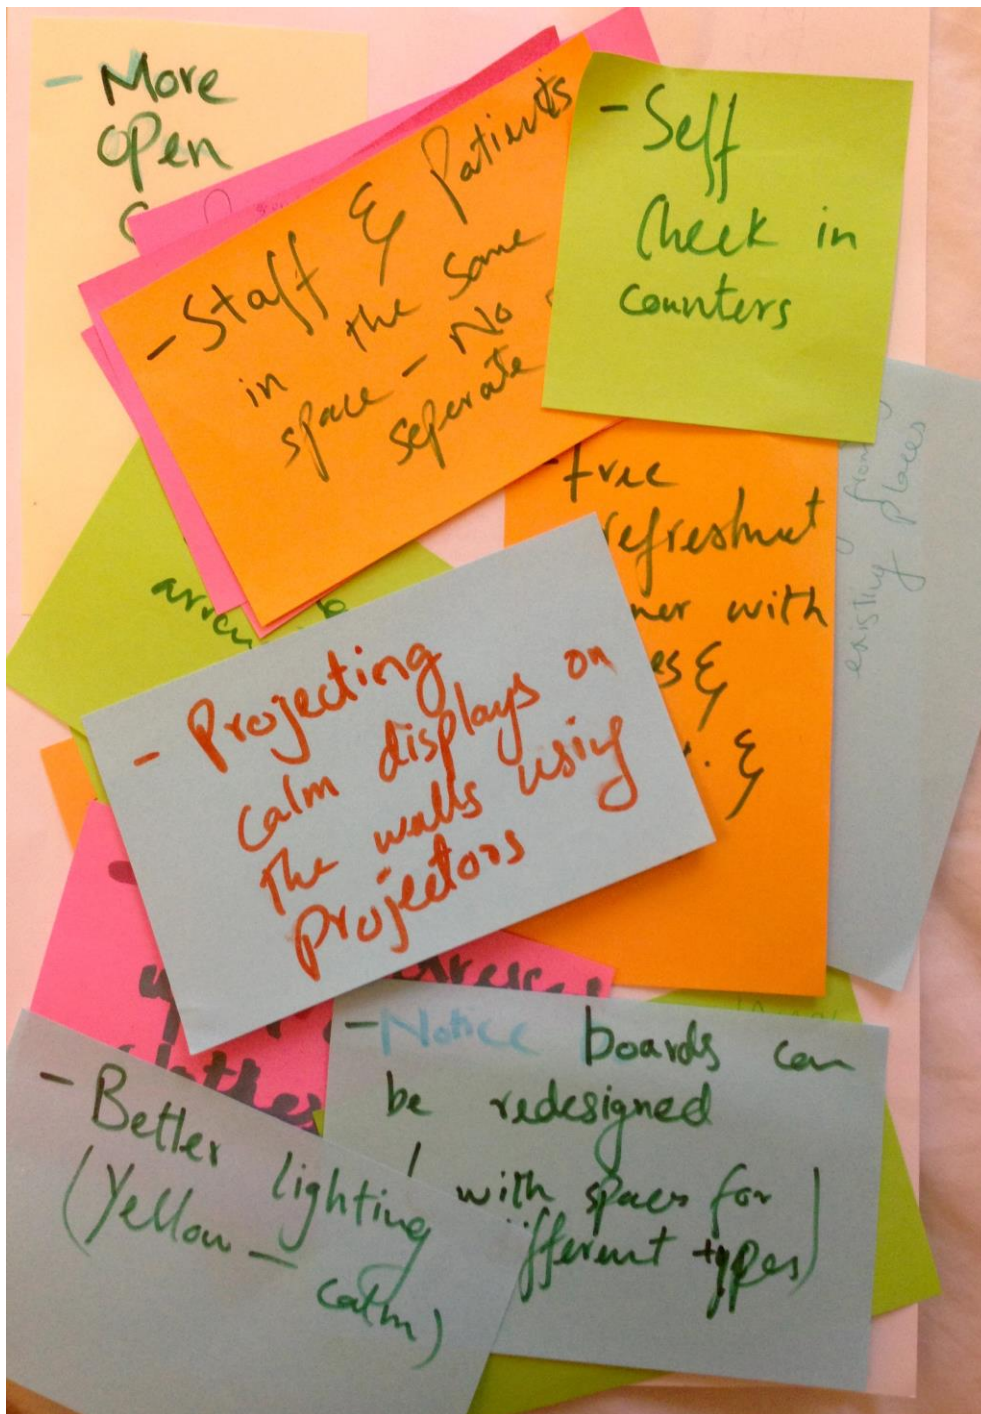 - More
open
- Staff & Patients
in the same
space - No
seperate
- Self
Check in
counters
- free
refreshmut
with
&
&
from
existing places
- Projecting
calm displays on
the walls using
Projectors
- Notice boards can
be redesigned
(with spaces for
fferent types)
- Better lighting
(Yellow -
calm)